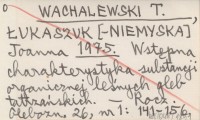 WACHALEWSKI T.,
ŁUKASZUK [-NIEMYSKA]
Joanna 1975. Wstępna
charakterystyka substancji
organicznej leśnych gleb
tatrzańskich. — Rocz.
Glebozn. 26, nr 1: 141-156.